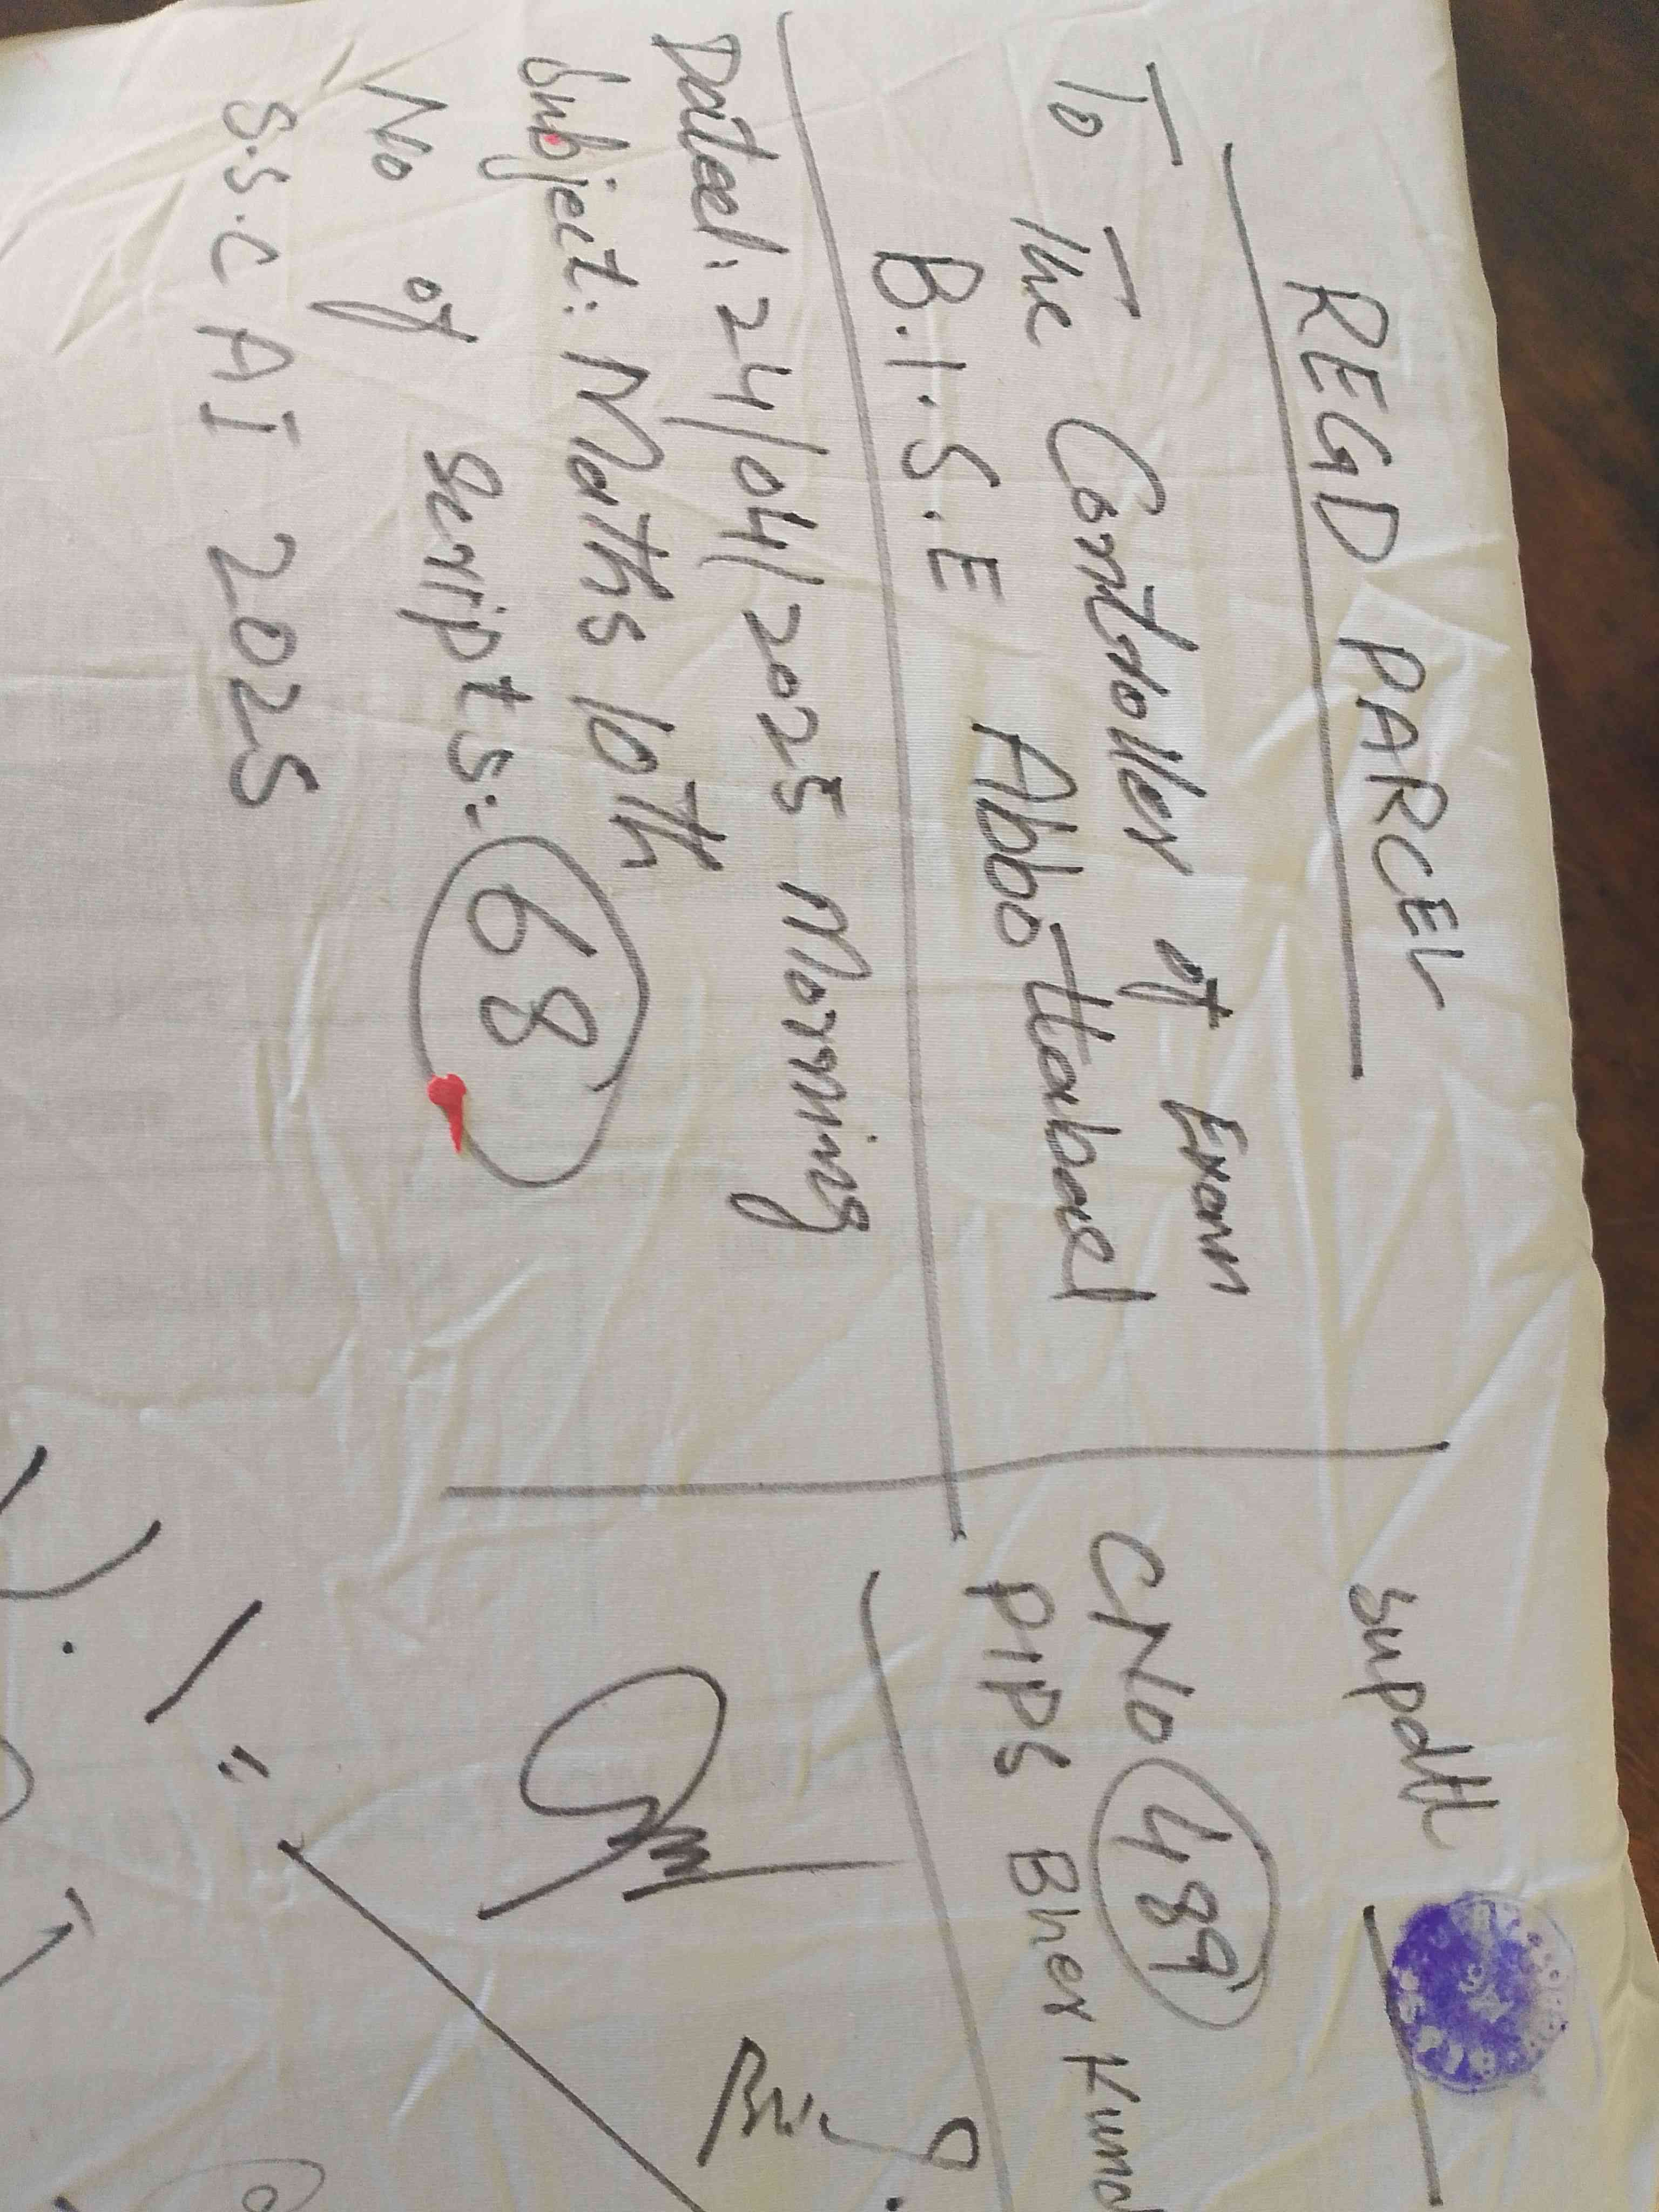 REGD PARCEL
To The Controller of Exam
B.I.S.E Abbottabad
Dated: 24/04/2025 Morning
Subject: Maths 10th
No of Scripts: 68
S.S.C AI 2025
Supdtt
CNo 489
PIPS Bher Kund